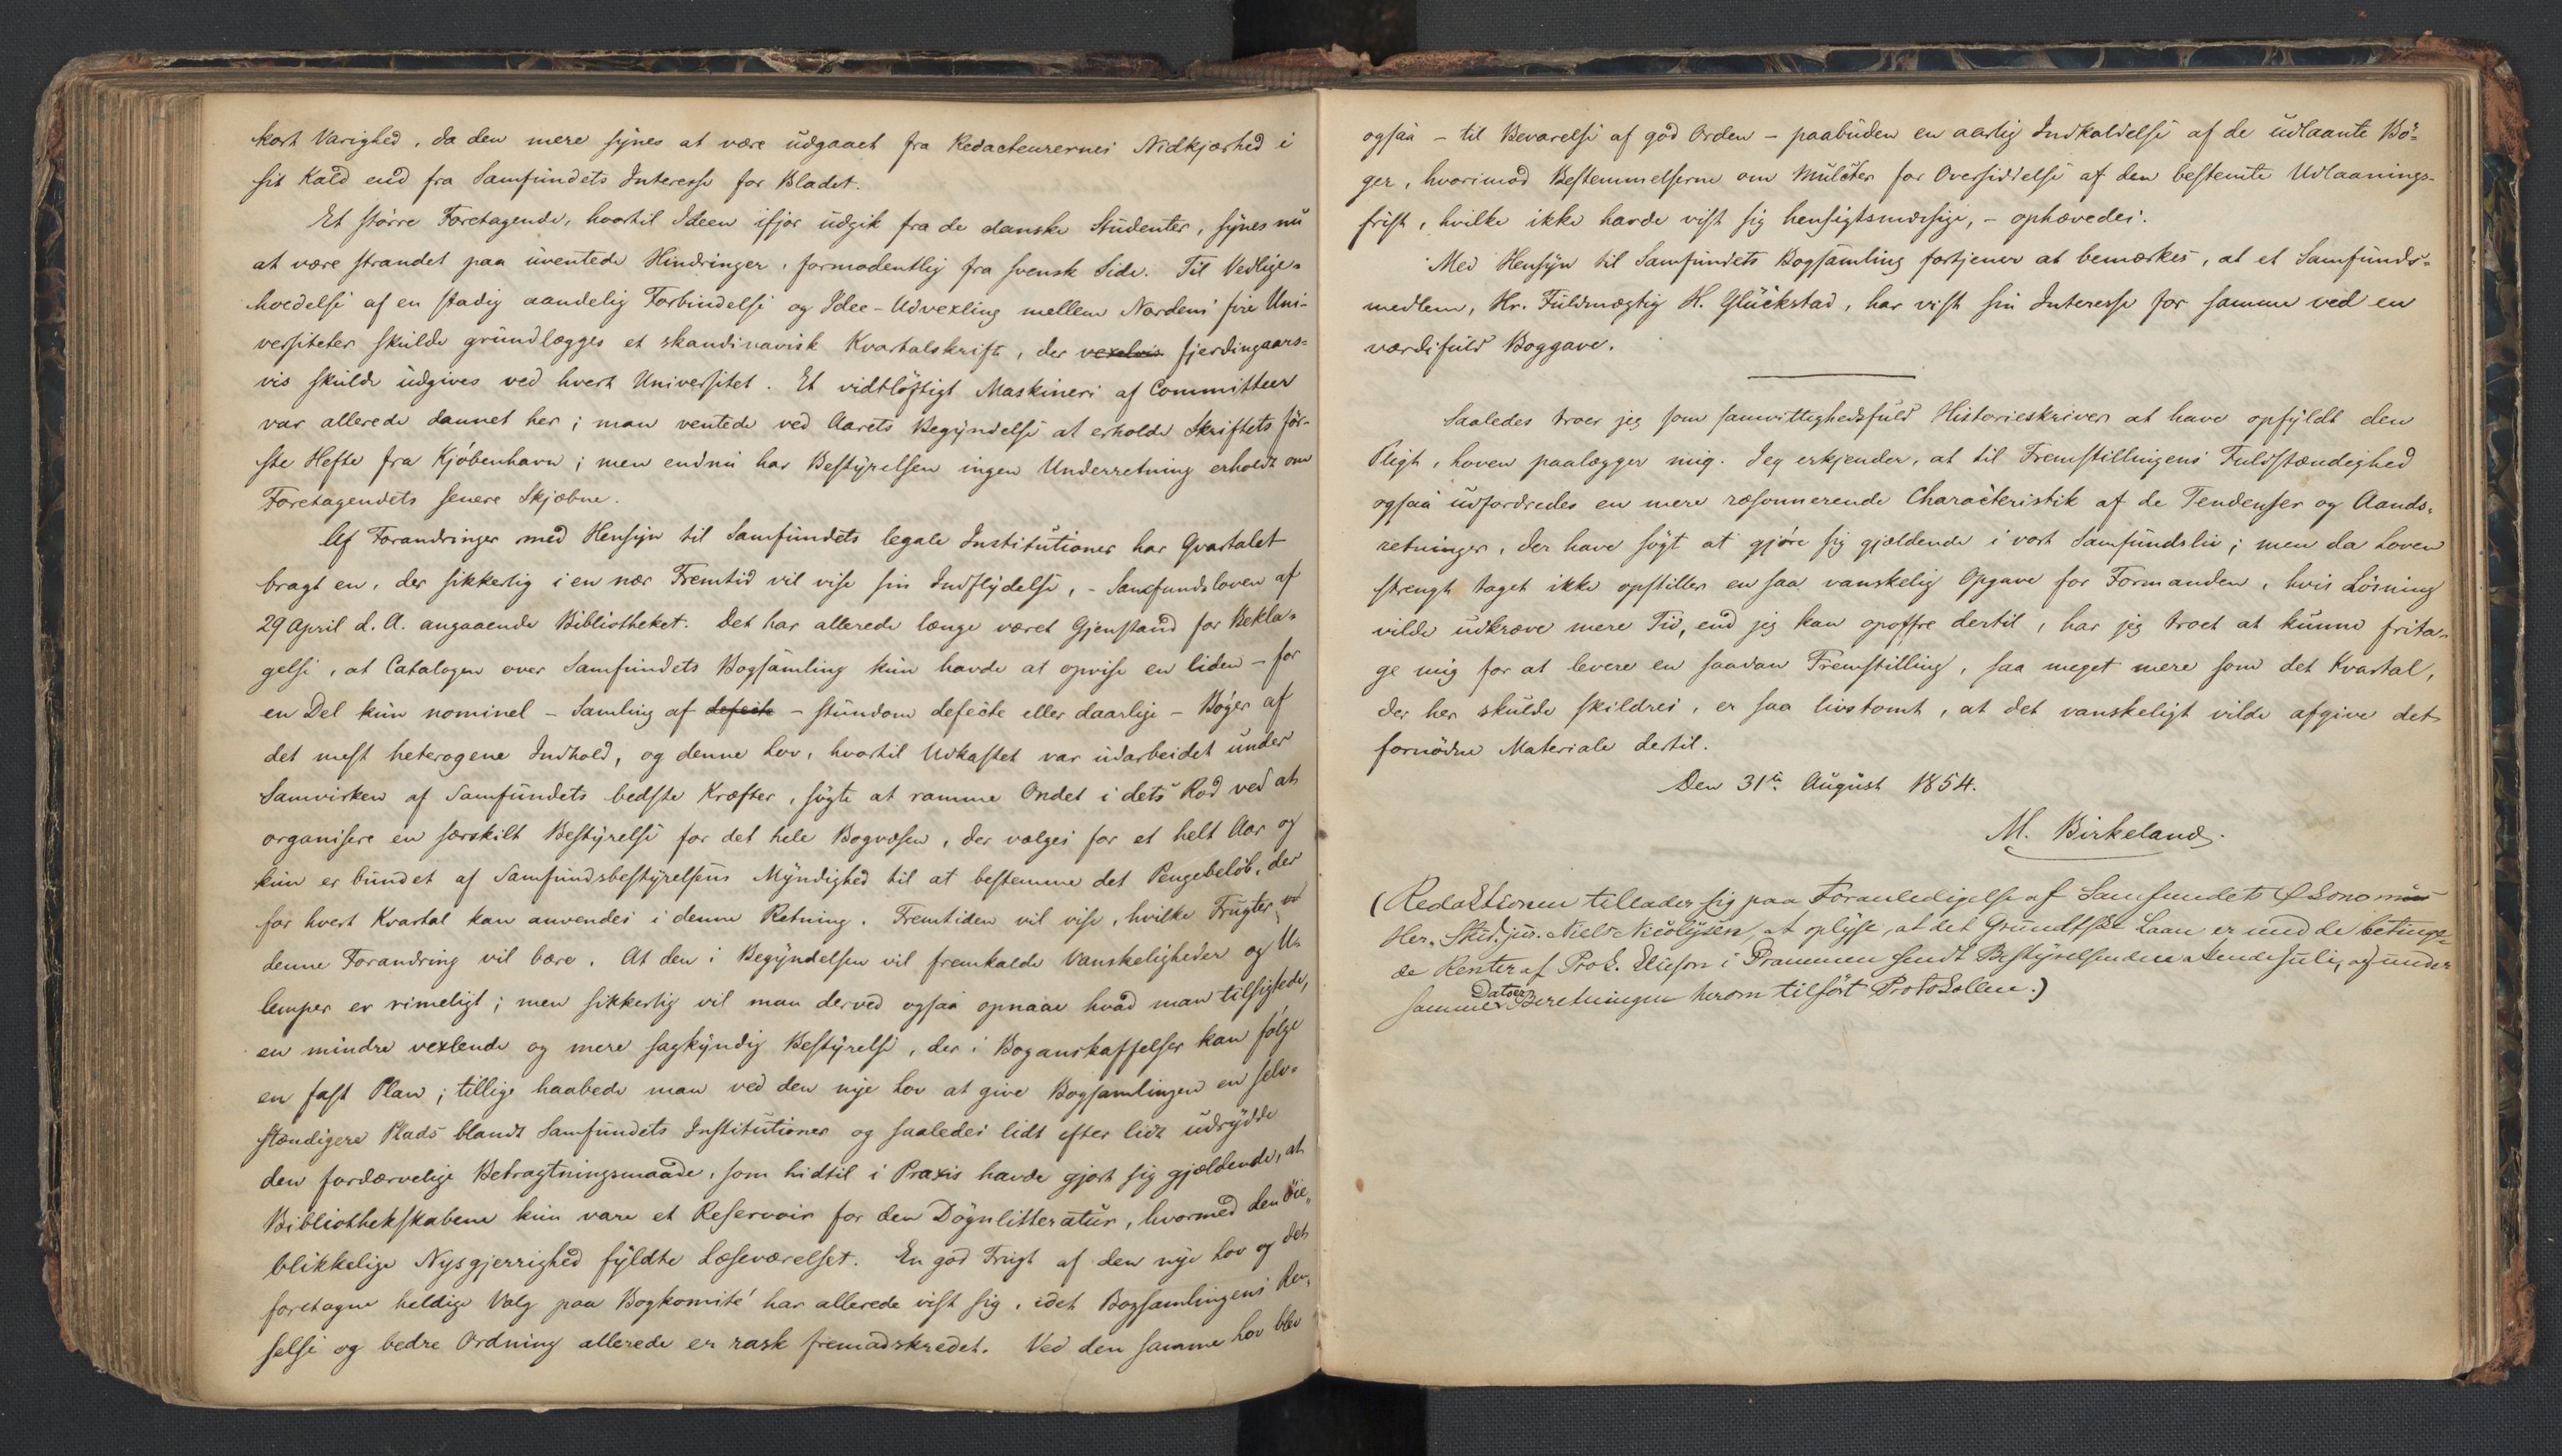 kort Varighed, da den mere synes at være udgaaet fra Redacteurernes Nidkjærhed i
sit Kald end fra Samfundets Interesse for Bladet.
Et større Foretagende, hvortil Ideen ifjor udgik fra de danske Studenter, synes nu
at være strandet paa uventede Hindringer, formodentlig fra svensk Side. Til Vedlige-
hoedelse af en stadig aandelig Forbindelse og Idee-Udvexling mellem Nordens fire Uni-
versiteter skulde grundlægges et skandinavisk Kvartalskrift, der vexelvis fjerdingaars-
vis skulde udgives ved hvert Universitet. Et vidtløftigt Maskineri af Committeer
var allerede dannet her; man ventede ved Aarets Begyndelse at erholde Skriftets før-
ste Hefte fra Kjøbenhavn; men endnu har Bestyrelsen ingen Underretning erholdt om
Foretagendets senere Skjæbne.
Af Forandringer med Hensyn til Samfundets legale Institutioner har Qvartalet
bragt en, der sikkerlig i en nær Fremtid vil vise sin Indflydelse, - Samfundsloven af
29 April d. A. angaaende Bibliotheket. Det har allerede længe været Gjenstand for Bekla-
gelse, at Catalogen over Samfundets Bogsamling kun havde at opvise en liden - for
en Del kun nominel - Samling af defecte - stundom defecte eller daarlige - Bøger af
det mest heterogene Indhold, og denne Lov, hvortil Udkastet var udarbeidet under
Samvirken af Samfundets bedste Kræfter, søgte at ramme Ondet i dets Rod ved at
organisere en særskilt Bestyrelse for det hele Bogvæsen, der vælges for et helt Aar og
kun er bundet af Samfundsbestyrelsens Myndighed til at bestemme det Pengebeløb, der
for hvert Kvartal kan anvendes i denne Retning. Fremtiden vil vise, hvilke Frugter
denne Forandring vil bære. At den i Begyndelsen vil fremkalde Vanskeligheder og U-
lemper er rimeligt; men sikkerlig vil man derved ogsaa opnaae hvad man tilsigtede,
en mindre vexlende og mere sagkyndig Bestyrelse, der i Boganskaffelser kan følge
en fast Plan; tillige haabede man ved den nye Lov at give Bogsamlingen en selv-
stændigere Plads blandt Samfundets Institutioner og saaledes lidt efter lidt udrydde
den fordærvelige Betragtningsmaade, som hidtil i Praxis havde gjort sig gjældende, at
Bibliothekskabene kun vare et Reservoir for den Døgnlitteratur, hvormed den øie-
blikkelige Nysgjerrighed fyldte Læseværelset. En god Frugt af den nye Lov og det
foretagne heldige Valg paa Bogkomité har allerede vist sig, idet Bogsamlingens Ren-
selse og bedre Ordning allerede er rask fremadskredet. Ved den samme Lov blev
ogsaa - til Bevarelse af god Orden - paabuden en aarlig Indkaldelse af de udlaante Bø-
ger, hvorimod Bestemmelserne om Mulcter for Oversiddelse af den bestemte Udlaanings-
frist, hvilke ikke havde vist sig hensigtsmæssige, - ophævedes.
Med Hensyn til Samfundets Bogsamling fortjener at bemærkes, at et Samfunds-
medlem, Hr. Fuldmægtig H. Glückstad, har vist sin Interesse for samme ved en
værdifuld Boggave.
Saaledes troer jeg som samvittighedsfuld Historieskriver at have opfyldt den
Pligt, Loven paalægger mig. Jeg erkjender, at til Fremstillingens Fuldstændighed
ogsaa udfordredes en mere ræsonnerende Characteristik af de Tendenser og Aands-
retninger, der have søgt at gjøre sig gjældende i vort Samfundsliv; men da Loven
strengt taget ikke opstiller en saa vanskelig Opgave for Formanden, hvis Løsning
vilde udkræve mere Tid, end jeg kan opoffre dertil, har jeg troet at kunne frita-
ge mig for at levere en saadan Fremstilling, saa meget mere som det Kvartal,
der her skulde skildres, er saa livstomt, at det vanskeligt vilde afgive det
fornødne Materiale dertil.
Den 31te August 1854.
M. Birkeland.
(Redaktionen tillader sig paa Foranledigelse af Samfundets Økonomus
Her. Stud. jur. Niels Nicolysen, at oplyse, at det Grundtske Laan er med de betinge-
de Renter af Prok. Eliesen i Drammen sendt Bestyrelsen den Juli, og under
samme Datoer Beretningen herom tilført Protokollen.)